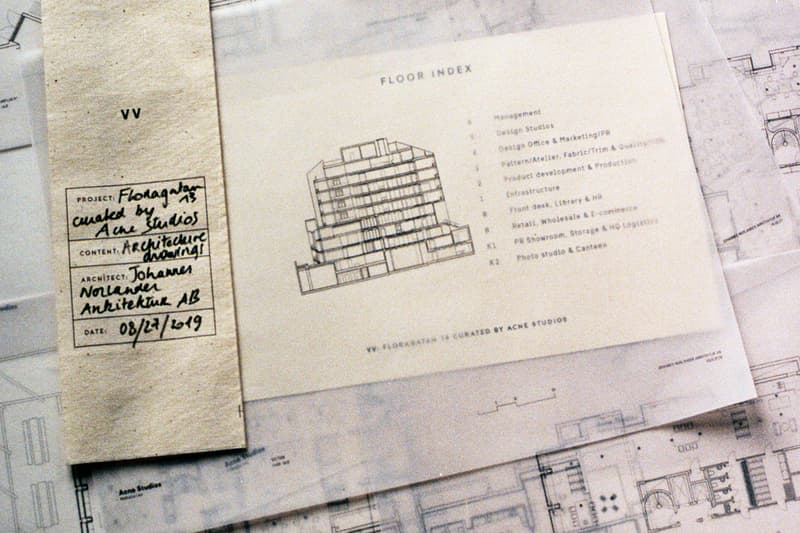 VV
PROJECT: Floragatan 13
curated by
Acne Studios
CONTENT: Architecture
drawing!
ARCHITECT: Johannes
Norlander
Arkitektur AB
DATE: 08/27/2019
FLOOR INDEX
Management
Design Studios
Design Office & Marketing/PR
Pattern/Atelier, Fabric/Trim &
2 Product development & Production
1 Infrastructure
Front desk, Library & HR
Retail, Wholesale & E-commerce
K1 PR Showroom, Storage & HQ Logistics
K2 Photo studio & Canteen
VV: FLORAGATAN 13 CURATED BY ACNE STUDIOS
Acne Studios
Acne Studios